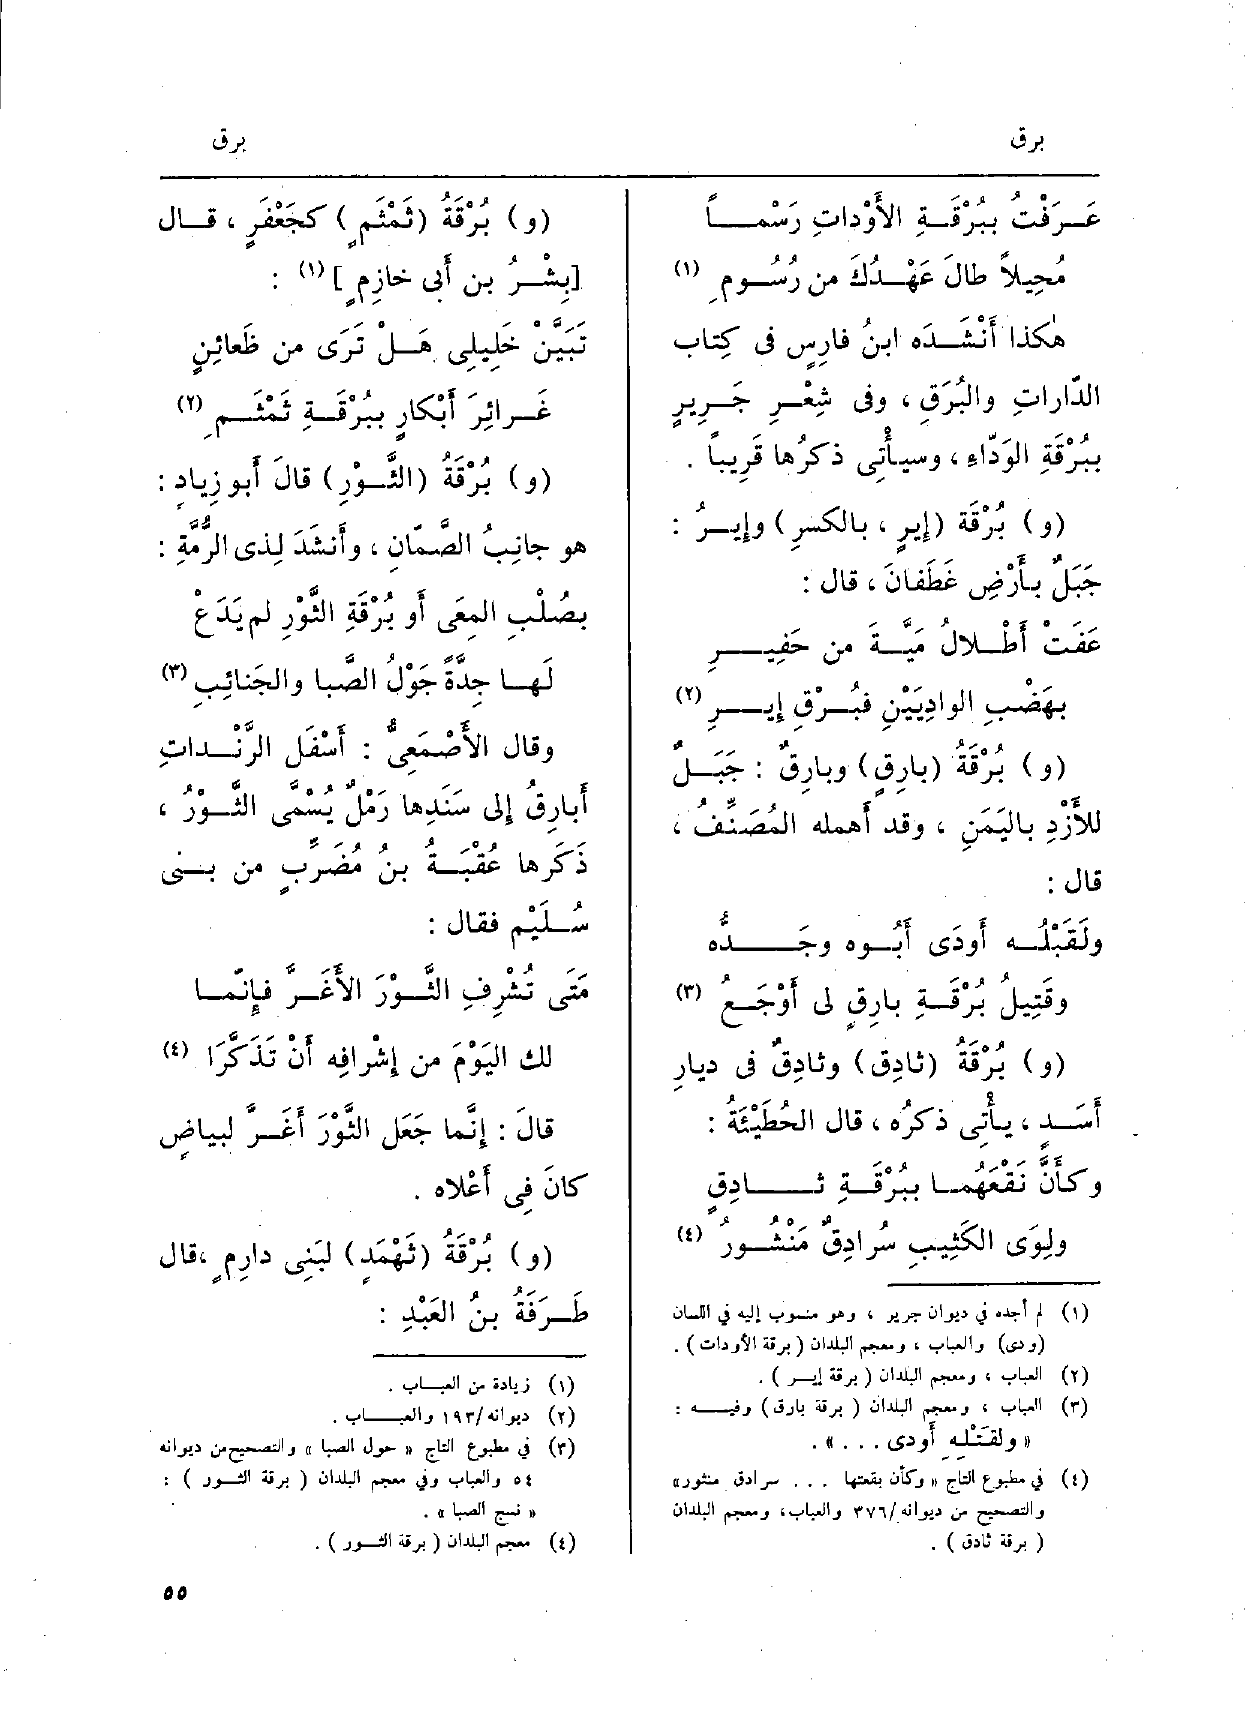 برق
برق
عَـرَفْتُ بِبُرْقَـةِ الأَوْداتِ رَسْمـــاً
مُحِيلاً طالَ عَهْـدُكَ من رُسُـومِ (١)
هٰكذا أَنْشَـدَه ابنُ فارِسٍ فى كِتاب
الدّاراتِ والبُرَقِ ، وفى شِعْـرِ جَـرِيرٍ
بِبُرْقَةِ الوَدّاءِ ، وسيأْتِى ذكرُها قَرِيباً .
(و) بُرْقَة (إِيرٍ ، بالكسرِ) وإِيـرُ :
جَبَلٌ بأَرْضِ غَطَفانَ ، قال :
عَفَتْ أَطْـلالُ مَيَّـةَ من حَفِيـــرِ
بهَضْبِ الوادِيَيْنِ فبُـرْقِ إِيــرِ (٢)
(و) بُرْقَةُ (بارِقٍ) وبارِقٌ : جَبَـلٌ
للأَزْدِ باليَمَنِ ، وقد أَهمله المُصَنِّفُ ،
قال :
ولَقَبْلَـه أَودَى أَبُـوه وجَـــدُّه
وقَتِيلُ بُرْقَـةِ بارِقٍ لى أَوْجَـعُ (٣)
(و) بُرْقَةُ (ثادِق) وثادِقٌ فى ديارِ
أَسَـدٍ ، يأْتِى ذكرُه ، قال الحُطَيْئَةُ :
وكأَنَّ نَقْعَهُمـا بِبُرْقَـةِ ثــادِقٍ
ولِوَى الكَثِيبِ سُرادِقٌ مَنْشُـورُ (٤)
(١) لم أجده في ديوان جرير ، وهو منسوب إليه في اللسان
(ودى) والعباب ، ومعجم البلدان ( برقة الأودات ) .
(٢) العباب ، ومعجم البلدان ( برقة إيـر ) .
(٣) العباب ، ومعجم البلدان ( برقة بارق ) وفيــه :
« ولقَتْله أودى . . . » .
(٤) في مطبوع التاج « وكأن بقعتها . . . سرادق منثور»
والتصحيح من ديوانه/٣٧٦ والعباب، ومعجم البلدان
( برقة ثادق ) .
(و) بُرْقَةُ (ثَمْثَمٍ) كجَعْفَرٍ ، قـال
[بِشْـرُ بن أَبى خازِمٍ ] (١) :
تَبَيَّنْ خَلِيلِى هَـلْ تَرَى من ظَعائِنٍ
غَـرائِرَ أَبْكارٍ بِبُرْقَـةِ ثَمْثَـمِ (٢)
(و) بُرْقَةُ (الثَّـوْرِ) قالَ أَبو زِيادٍ :
هو جانِبُ الصَّمّانِ ، وأَنشَدَ لِذى الرُّمَّةِ :
بصُلْبِ المِعَى أو بُرْقَةِ الثَّوْرِ لم يَدَعْ
لَهـا جِدَّةً جَوْلُ الصَّبا والجَنائِبِ (٣)
وقال الأَصْمَعِىُّ : أَسْفَل الوَّنْـداتِ
أَبارِقُ إِلى سَنَدِها رَمْلٌ يُسْمَّى الثَّـوْرُ ،
ذَكَرها عُقْبَـةُ بنُ مُضَرِّبٍ من بـنى
سُـلَيْم فقال :
مَتَى تُشْرِفِ الثَّـوْرَ الأَغَـرَّ فإِنَّمـا
لك اليَوْمَ من إِشْرافِه أَنْ تَذَكَّرَا (٤)
قالَ : إِنَّما جَعَل الثَّوْرَ أَغَـرَّ لبياضٍ
كانَ فِى أَعْلاه .
(و) بُرْقَةُ (ثَهْمَدٍ) لبَنِى دارِمٍ ،قال
طَـرَفَةُ بنُ العَبْدِ :
(١) زيادة من العبـاب .
(٢) ديوانه/١٩٣ والعبــاب .
(٣) في مطبوع التاج « حول الصبا » والتصحيح من ديوانه
٥٤ والعباب وفي معجم البلدان ( برقة الثـور ) :
« نسج الصبا » .
(٤) معجم البلدان ( برقة الثـور ) .
٥٥